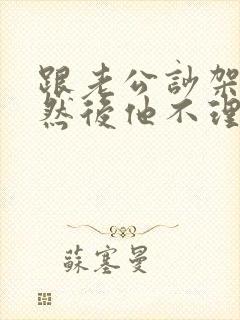 跟老公訃架
然後他不理
蘇塞曼